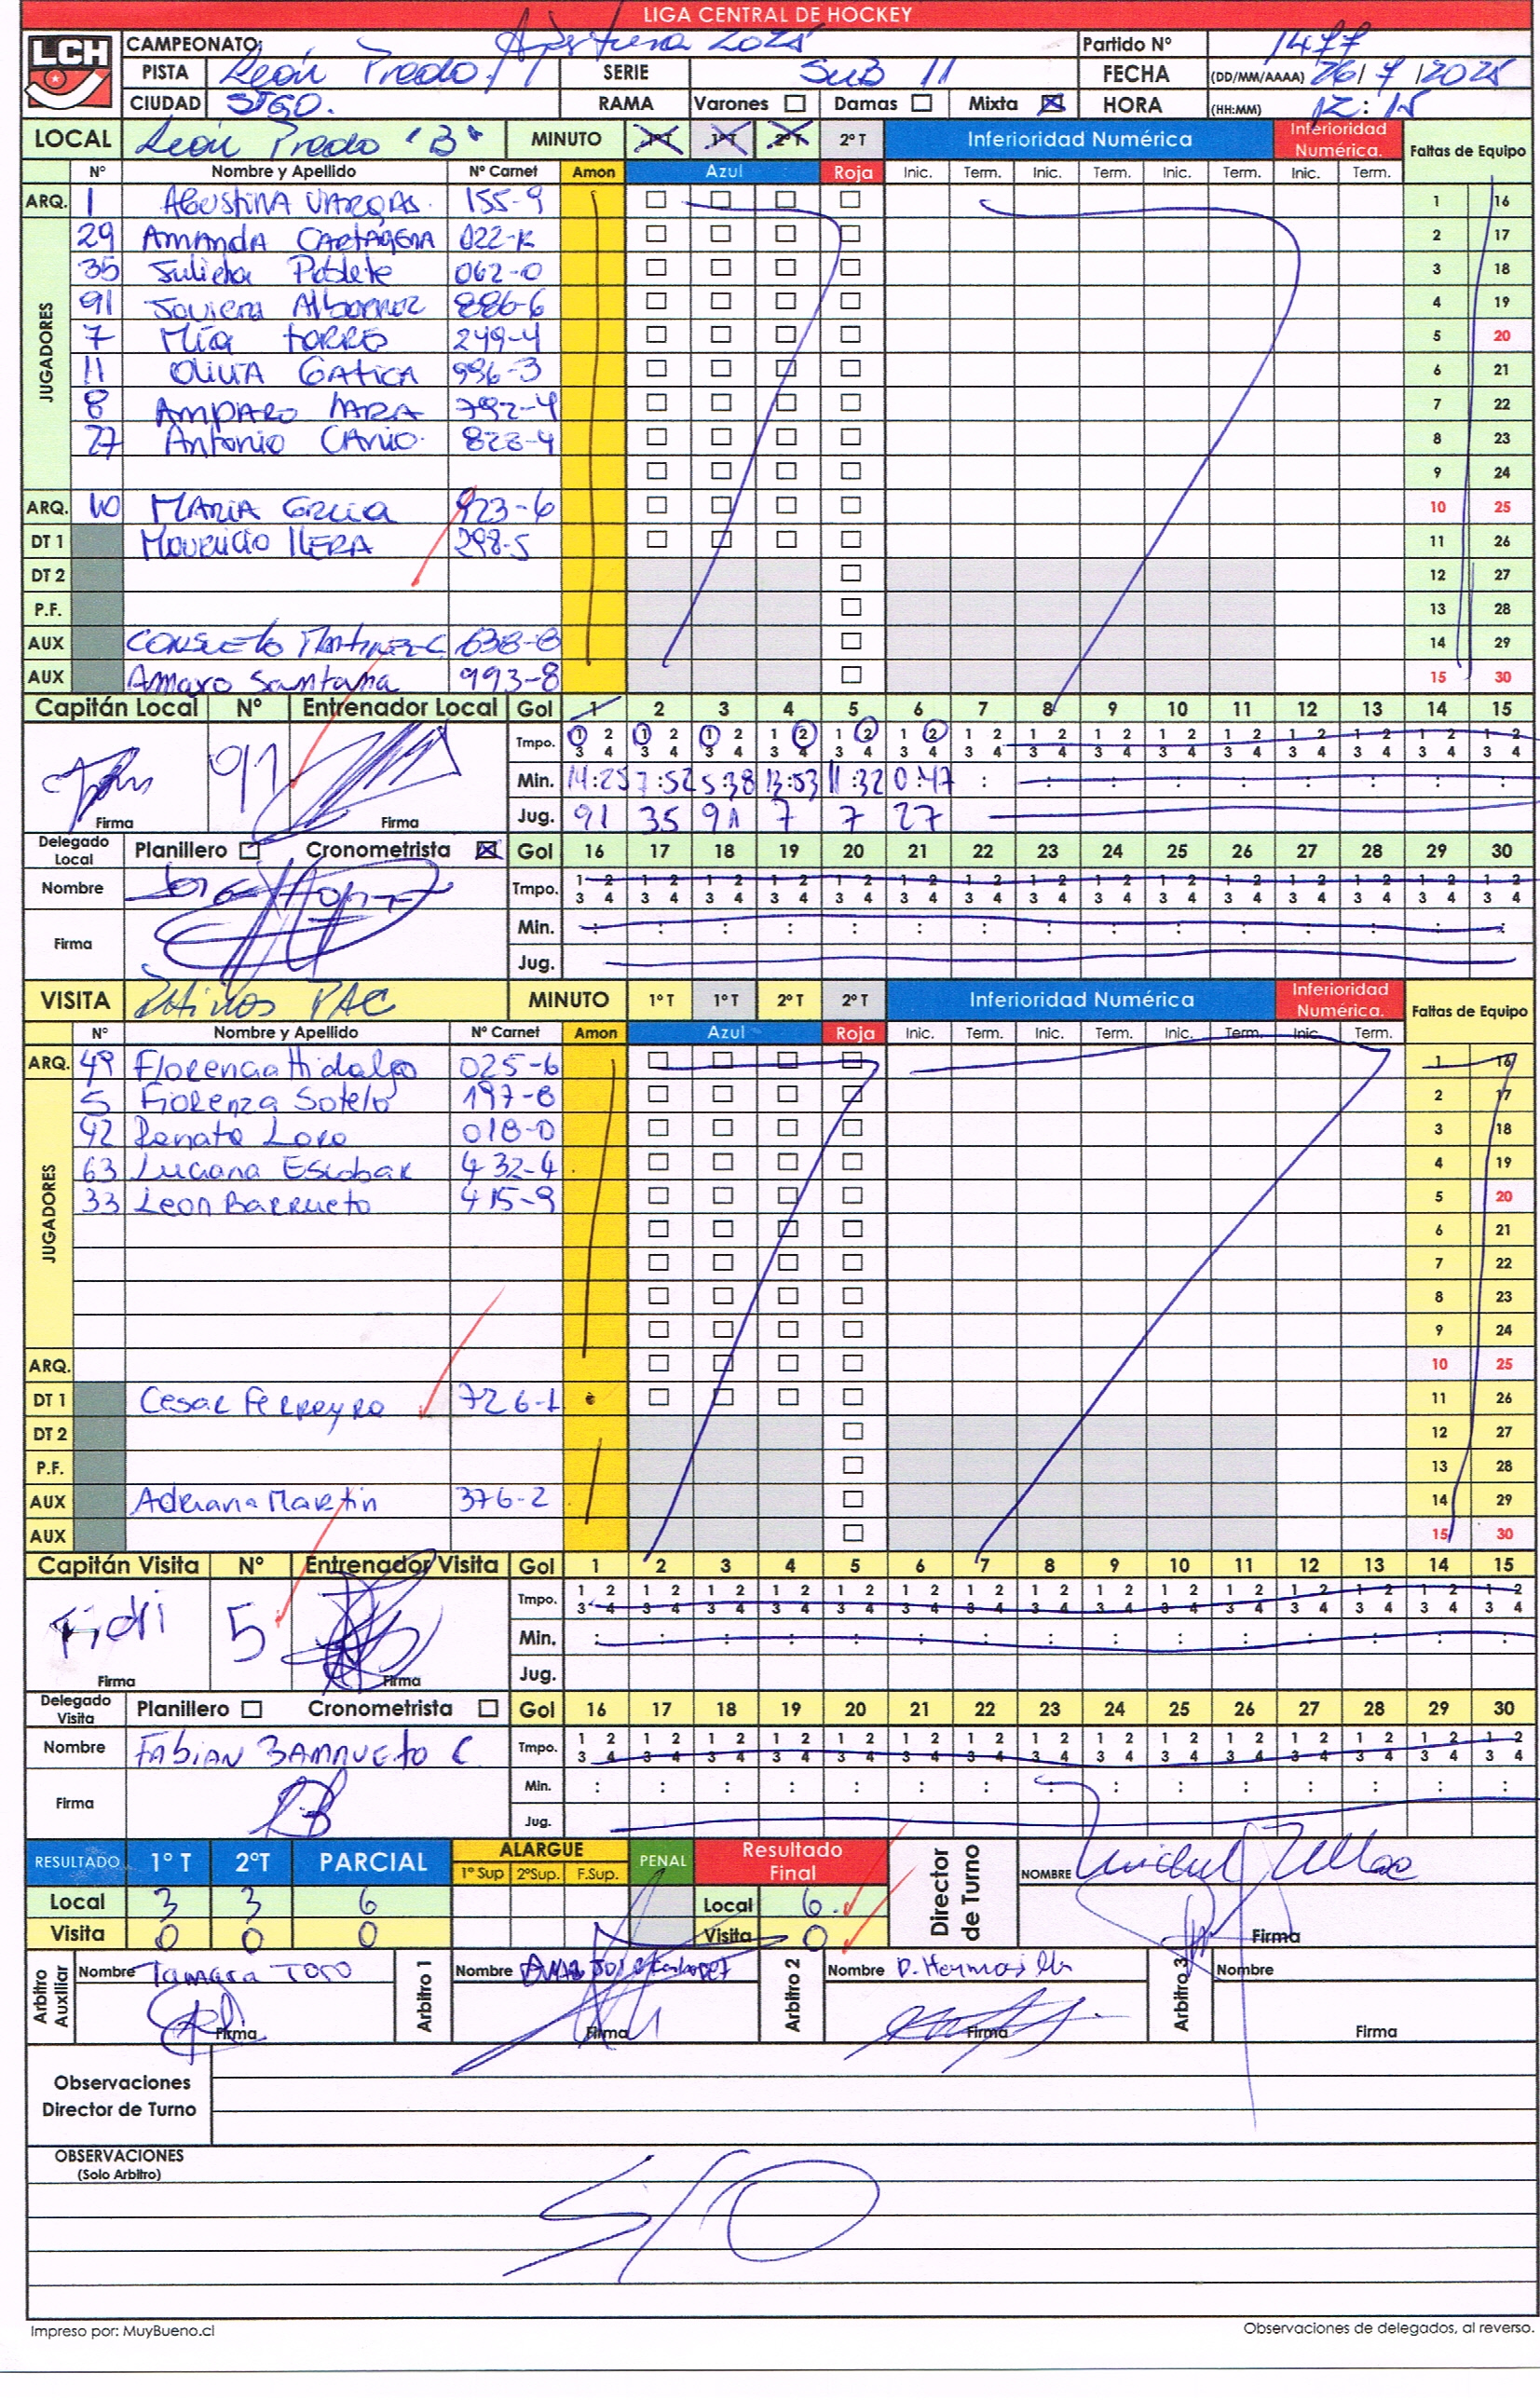 LIGA CENTRAL DE HOCKEY
LCH
CAMPEONATO: Apertura 2025 Partido Nº 1477
PISTA León Prado SERIE Sub 11 FECHA (DD/MM/AAAA) 26/7/2025
CIUDAD STGO. RAMA Varones Damas Mixta HORA (HH:MM) 12:15
LOCAL León Prado "B" MINUTO 1º T 1º T 2º T 2º T Inferioridad Numérica Inferioridad Numérica. Faltas de Equipo
Nº Nombre y Apellido Nº Carnet Amon Azul Roja Inic. Term. Inic. Term. Inic. Term. Inic. Term.
ARQ. 1 AGUSTINA VARGAS. 155-9 1 16
JUGADORES
29 AMANDA CARTAGENA 022-K 2 17
35 Julieta Poblete 062-0 3 18
91 Javiera Albornoz 886-6 4 19
7 Mía torres 249-4 5 20
11 OLIVIA GATICA 996-3 6 21
8 AMPARO LARA 792-4 7 22
27 Antonio CANIO. 828-4 8 23
9 24
ARQ. 10 MARIA GRECIA 923-6 10 25
DT 1 MAURICIO LLERA 298-5 11 26
DT 2 12 27
P.F. 13 28
AUX CONSUELO MARTINEZ C. 638-8 14 29
AUX Amaro Santana 993-8 15 30
Capitán Local Nº Entrenador Local Gol 1 2 3 4 5 6 7 8 9 10 11 12 13 14 15
Tmpo. 1 2 3 4 1 2 3 4 1 2 3 4 1 2 3 4 1 2 3 4 1 2 3 4 1 2 3 4 1 2 3 4 1 2 3 4 1 2 3 4 1 2 3 4 1 2 3 4 1 2 3 4 1 2 3 4 1 2 3 4
91 Min. 14:25 7:52 5:38 13:53 11:32 0:47 : : : : : : : : :
Firma Firma Jug. 91 35 91 7 7 27
Delegado Local Planillero Cronometrista Gol 16 17 18 19 20 21 22 23 24 25 26 27 28 29 30
Nombre Tmpo. 1 2 3 4 1 2 3 4 1 2 3 4 1 2 3 4 1 2 3 4 1 2 3 4 1 2 3 4 1 2 3 4 1 2 3 4 1 2 3 4 1 2 3 4 1 2 3 4 1 2 3 4 1 2 3 4 1 2 3 4
Firma Min. : : : : : : : : : : : : : : :
Jug.
VISITA Patinos PAC MINUTO 1º T 1º T 2º T 2º T Inferioridad Numérica Inferioridad Numérica. Faltas de Equipo
Nº Nombre y Apellido Nº Carnet Amon Azul Roja Inic. Term. Inic. Term. Inic. Term. Inic. Term.
ARQ. 49 Florencia Hidalgo 025-6 1 16
JUGADORES
5 Fiorenza Sotelo 197-8 2 17
92 Renato Loro 018-0 3 18
63 Luciana Escobar 432-4 4 19
33 Leon Barrueto 415-9 5 20
6 21
7 22
8 23
9 24
ARQ. 10 25
DT 1 Cesar Ferreyra 726-1 11 26
DT 2 12 27
P.F. 13 28
AUX Adriana Martin 376-2 14 29
AUX 15 30
Capitán Visita Nº Entrenador Visita Gol 1 2 3 4 5 6 7 8 9 10 11 12 13 14 15
Tmpo. 1 2 3 4 1 2 3 4 1 2 3 4 1 2 3 4 1 2 3 4 1 2 3 4 1 2 3 4 1 2 3 4 1 2 3 4 1 2 3 4 1 2 3 4 1 2 3 4 1 2 3 4 1 2 3 4 1 2 3 4
5 Min. : : : : : : : : : : : : : : :
Firma Firma Jug.
Delegado Visita Planillero Cronometrista Gol 16 17 18 19 20 21 22 23 24 25 26 27 28 29 30
Nombre FABIAN BARRUETO C Tmpo. 1 2 3 4 1 2 3 4 1 2 3 4 1 2 3 4 1 2 3 4 1 2 3 4 1 2 3 4 1 2 3 4 1 2 3 4 1 2 3 4 1 2 3 4 1 2 3 4 1 2 3 4 1 2 3 4 1 2 3 4
Firma Min. : : : : : : : : : : : : : : :
Jug.
RESULTADO 1º T 2ºT PARCIAL ALARGUE 1º Sup 2ºSup. F.Sup. PENAL Resultado Final Director de Turno NOMBRE
Local 3 3 6 Local 6.
Visita 0 0 0 Visita 0 Firma
Arbitro Auxiliar Nombre Tamara TORO Arbitro 1 Nombre Arbitro 2 Nombre D. Hermosilla Arbitro 3 Nombre
Firma Firma Firma Firma
Observaciones
Director de Turno
OBSERVACIONES
(Solo Arbitro)
S/O
Impreso por: MuyBueno.cl Observaciones de delegados, al reverso.